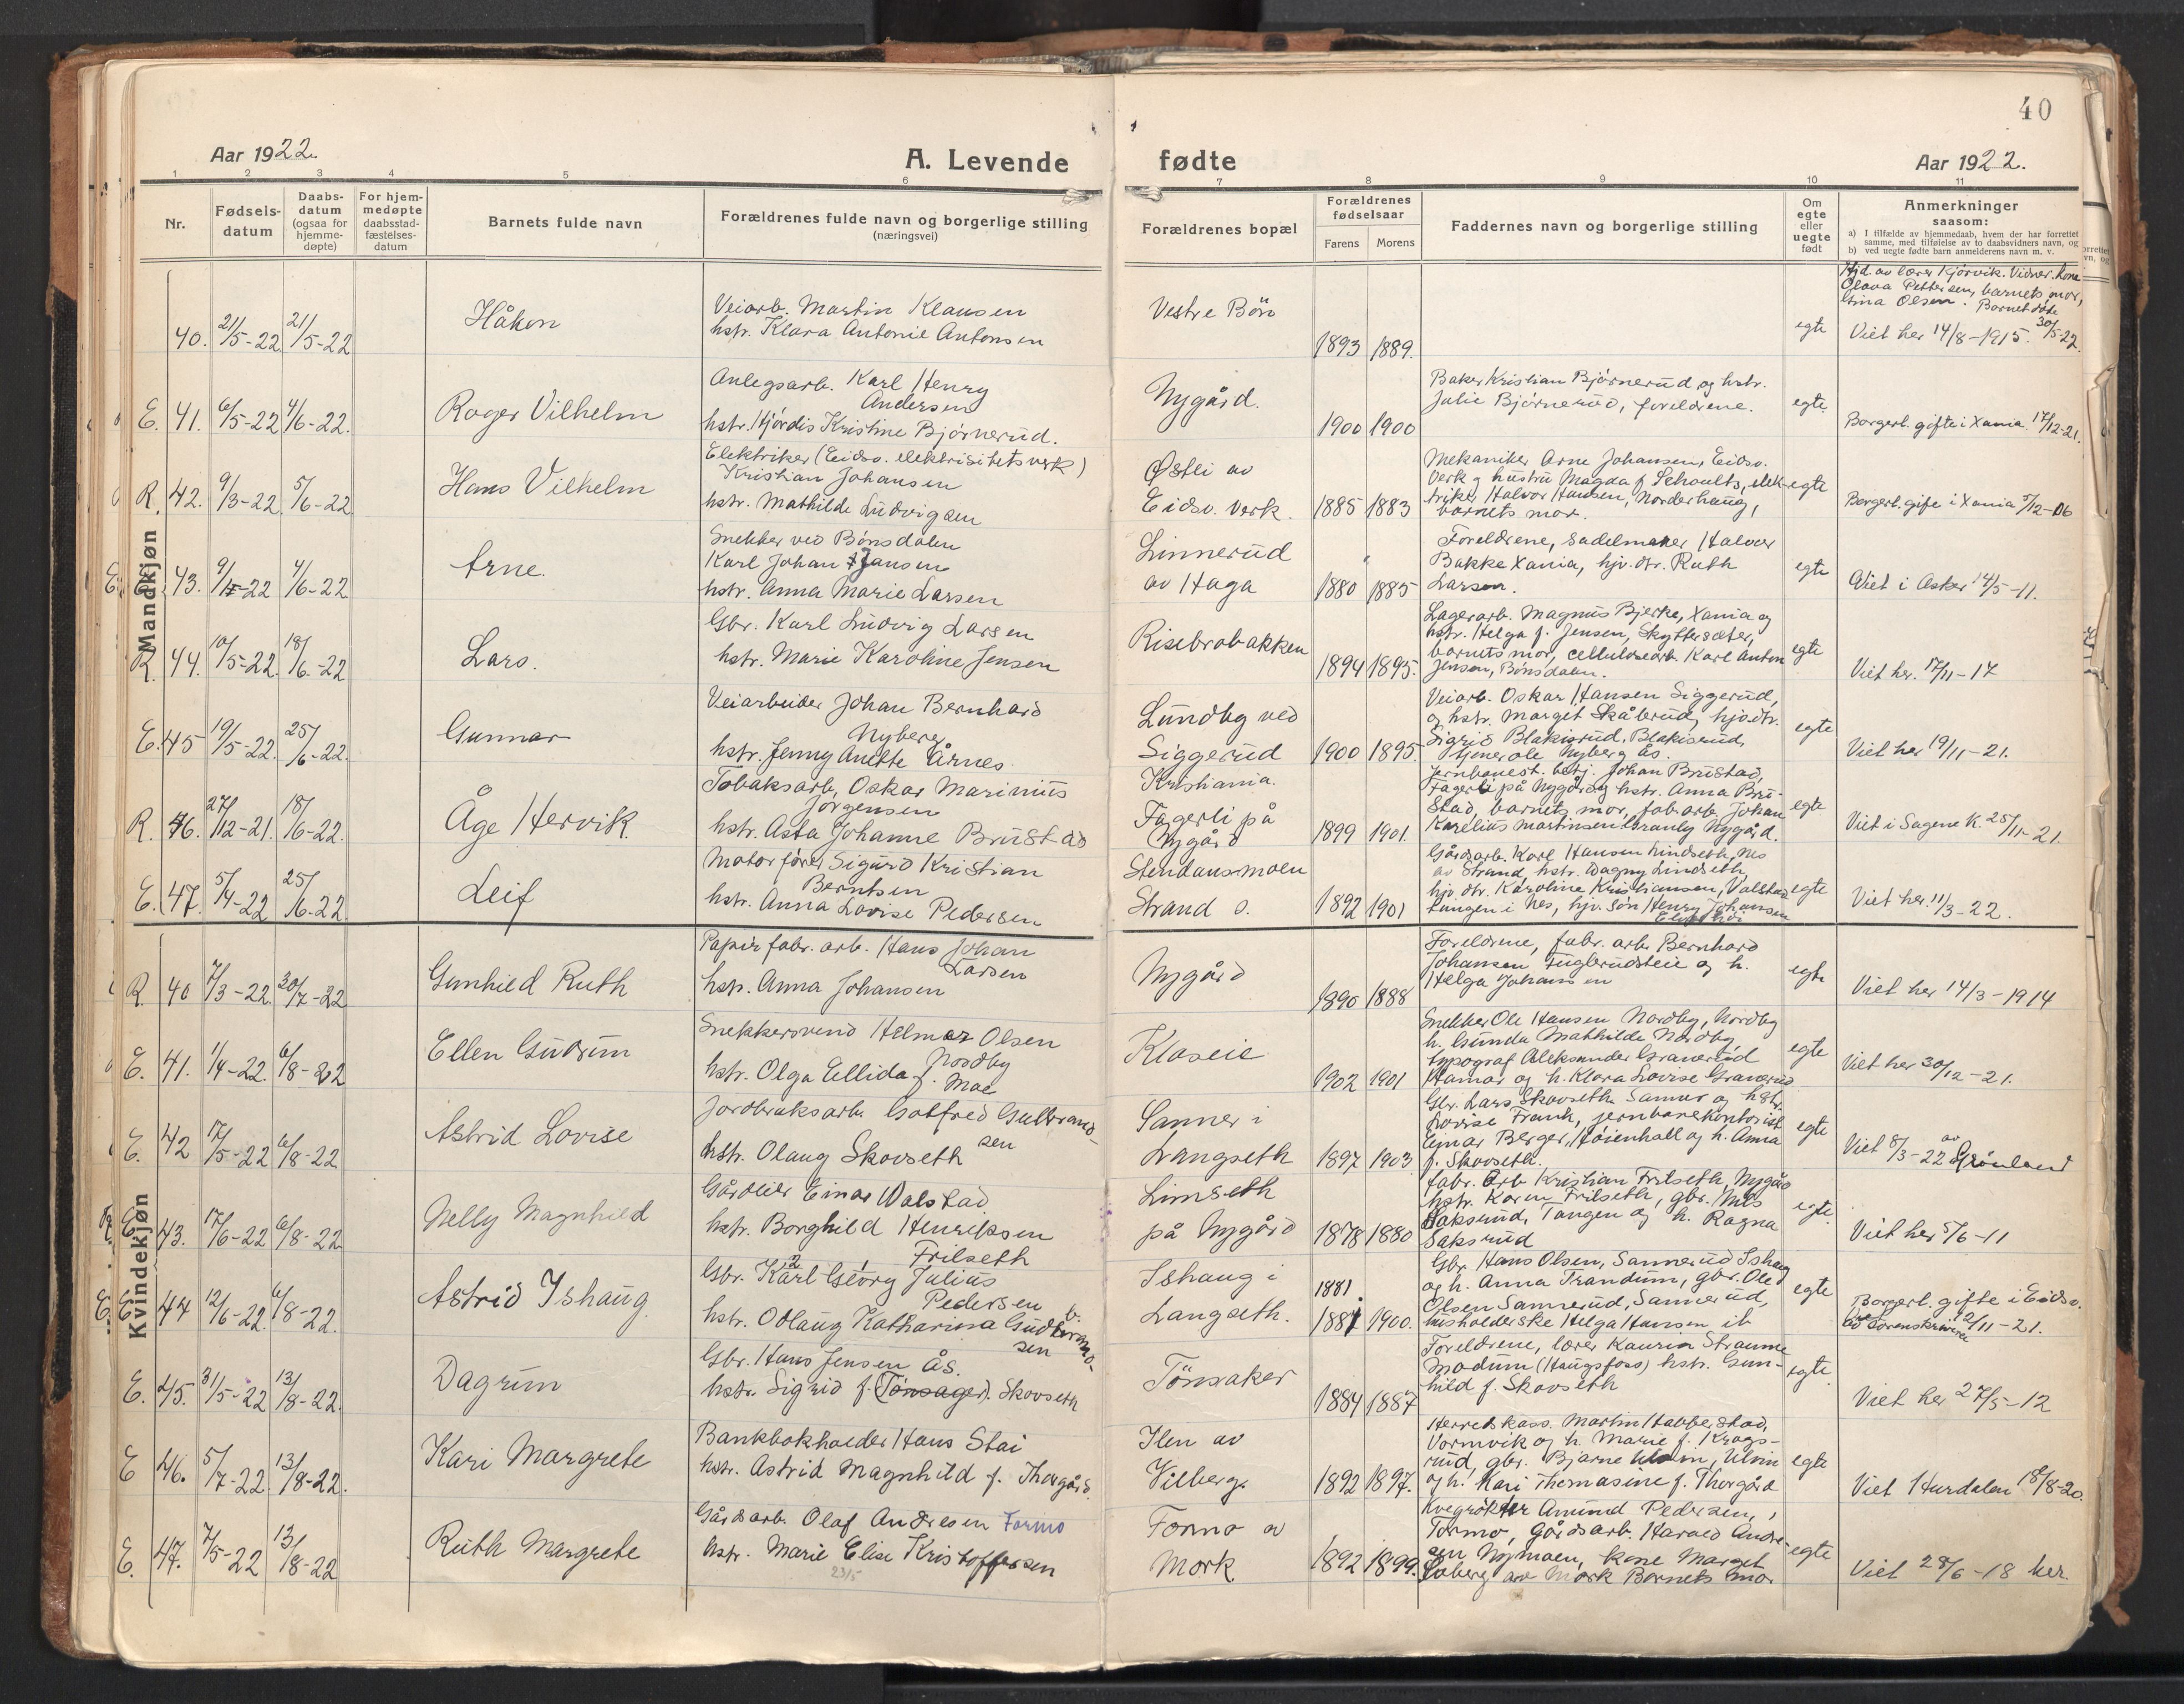 40
Aar 1922.
A. Levende
fødte
Aar 1922.
1 2 3 4 5 6 7 8 9 10 11
Nr.
Fødsels-
datum
Daabs-
datum
(ogsaa for
hjemme-
døpte)
For hjem-
medøpte
daabsstad-
fæstelses-
datum
Barnets fulde navn
Forældrenes fulde navn og borgerlige stilling
(næringsvei)
Forældrenes bopæl
Forældrenes
fødselsaar
Farens Morens
Faddernes navn og borgerlige stilling
Om
egte
eller
uegte
født
Anmerkninger
saasom:
a) I tilfælde av hjemmedaab, hvem der har forrettet
samme, med tilføielse av to daabsvidners navn, og
b) ved uegte fødte barn anmelderens navn m. v.
Mandkjøn
40. 21/5-22 21/5-22
Håkon
Veiarb. Martin Klausen
hstr. Klara Antonie Antonsen
Vestre Bön
1893 1889.
egte
Hjd. av lærer Kjörvik. Vidner: kone
Olava Pettersen, barnets mor,
Stina Olsen. Barnet döde
30/5-22.
Viet her 14/8-1915.
E. 41. 6/5-22 4/6-22.
Roger Vilhelm
Anlegsarb. Karl Henry
Andersen
hstr. Hjördis Kristine Bjørnerud.
Nygård.
1900 1900
Baker Kristian Bjørnerud og hstr.
Julie Bjørnerud, foreldrene.
egte
Borgerl. gifte i Xania 17/12-21.
R. 42. 9/3-22 5/6-22
Hans Vilhelm
Elektriker (Eidsv. elektrisitetsverk)
Kristian Johansen
hstr. Mathilde Ludvigsen
Østli av
Eidsv. Verk.
1885 1883
Mekaniker Arne Johansen, Eidsv.
Verk g hustru Magda f. Schoultz, elek-
triker Halvor Hansen, Norderhaug,
barnets mor.
egte
Borgerl. gife i Xania 5/12-06
E. 43. 4/6-22
Arne.
Snekker ved Bönsdalen
Karl Johan Jansen
hstr. Anna Marie Larsen
Linnerud
av Haga
1880 1885
Foreldrene, sadelmaker Halvor
Bakke Xania, hjv. dtr. Ruth
Larsen.
egte
Viet i Asker 14/5-11.
R. 44. 10/5-22. 18/6-22
Lars.
Gbr. Karl Ludvig Larsen
hstr. Marie Karoline Jensen
Risebrobakken
1894 1895.
Lagerarb. Magnus Bjerke, Xania og
hstr. Helga f. Jensen, Skyttersæter,
barnets mor, cellulosearb. Karl Anton
Jensen, Bönsdalen.
egte
Viet her. 17/11-17
E. 45 19/5-22. 25/6-22.
Gunnar
Veiarbeider Johan Bernhard
Nyberg
hstr. Jenny Anette Årnes.
Lundby ved
Siggerud
1900 1895.
Veiarb. Oskar Hansen Siggerud,
og hstr. Marget Skålerud, hjv. dtr.
Sigrid Blakisrud, Blakisrud,
tjener ole Nyberg Ås.
egte
Viet her 19/11-21.
R. 46. 27/12-21. 18/6-22.
Åge Hervik
Tobaksarb. Oskar Marinius
Jörgensen
hstr. Asta Johanne Brustad
Kristiania.
Fagerli på
Nygård
1899 1901.
Jernbanest. betj. Johan Brustad,
Fagerli på Nygård og hstr. Anna Bru-
stad, barnets mor, fab. arb. Johan
Karelius Martinsen Granly Nygård.
egte
Viet i Sagene K. 25/11-21.
E. 47. 5/4-22 25/6-22
Leif
Motorfører Sigurd Kristian
Berntsen
hstr. Anna Lovise Pedersen
Stendansmoen
Strand s.
1892 1901
Gårdsarb. Karl Hansen Lindseth, Nes
av Strand, hstr. Dagny Lindseth,
hjv. dtr. Karoline Kristiansen, Valstad
tangen i Nes, hjv. sön Henry Johansen
egte
Viet her. 11/3-22.
Kvindekjøn
R. 40 7/3-22. 30/7-22
Gunhild Ruth
Papirfabr. arb. Hans Johan
Larsen
hstr. Anna Johansen
Nygård
1890 1888
Foreldrene, fabr. arb. Bernhard
Johansen Fuglerudsteie og h.
Helga Johansen
egte
Viet her 14/3-1914
E. 41. 1/4-22. 6/8-22
Ellen Gudrun
Snekkersvend Helmer Olsen
Nordby
hstr. Olga Ellida f. Moe
Kloseie
1902 1901
Snekker Ole Hansen Nordby, Nordby
h. Gunda Mathilde Nordby,
typograf Aleksander Graverud
Hamar og h. Klara Lovise Graverud
egte
Viet her 30/12-21.
E. 42 17/5-22 6/8-22
Astrid Lovise
Jordbruksarb. Gotfred Gulbrand-
sen
hstr. Olaug Skovseth
Sanner i
Langseth
1897 1903
Gbr. Lars Skovseth Sanner og hstr.
Lovise Frank, jernbanekontorist
Einar Berger, Höienhall og h. Anna
f. Skovseth.
egte
Viet 8/3-22 av Grönland
E. 43. 17/6-22 6/8-22
Nelly Magnhild
Gårdeier Einar Valstad
hstr. Borghild Henriksen
Frilseth
Limseth
på Nygård
1878 1880
fabr. arb Kristian Frilseth, Nygård
hstr. Karen Frilseth, gbr. Nils
Saksrud, Tangen og h. Ragna
Saksrud
egte.
Viet her 5/6-11
E. 44 12/6-22. 6/8-22.
Astrid Ishaug.
Gbr. Karl Georg Julius
Pedersen
hstr. Odlaug Katharina Gudbrand-
sen
Ishaug i
Langseth.
1881.
1881 1900.
Gbr. Hans Olsen, Sannerud Ishaug
og h. Anna Trandum, gbr. Ole
Olsen Sannerud, Sannerud,
husholderske Helga Hansen ib
egte
Borgerl. gifte i Eidsv.
ved Sorenskriveren 12/11-21.
E. 45. 31/5-22 13/8-22.
Dagrun
Gbr. Hans Jensen Ås.
hstr. Sigrid f. (Tönsager). Skovseth
Tönsaker
1884 1887
Foreldrene, lærer Kaurin Straume
Modum (Haugsfoss) hstr. Gun-
hild f. Skovseth
egte.
Viet her 27/5-12
E 46. 5/7-22 13/8-22.
Kari Margrete
Bankbokholder Hans Stai
hstr. Astrid Magnhild f. Thorgård.
Ilen av
Vilberg.
1892 1897.
Herredskass. Martin Habberstad,
Vormvik og h. Marie f. Krogs-
rud, gbr. Bjarne Ulvin, Ulvin
og h. Kari Thomasine f. Thorgård
egte
Viet Hurdalen 18/8-20.
E. 47. 7/5-22 13/8-22
Ruth Margrete
Gårdsarb. Olaf Andresen Formo
hstr. Marie Elise Kristoffersen
23/5
Formo av
Mork
1892 1899.
Kvegrökter Amund Pedersen,
Formo, Gårdsarb. Harald Andre-
sen Nymoen, kone Marget
Loberg av Mork Barnets mor
egte
Viet 28/6-18 her.